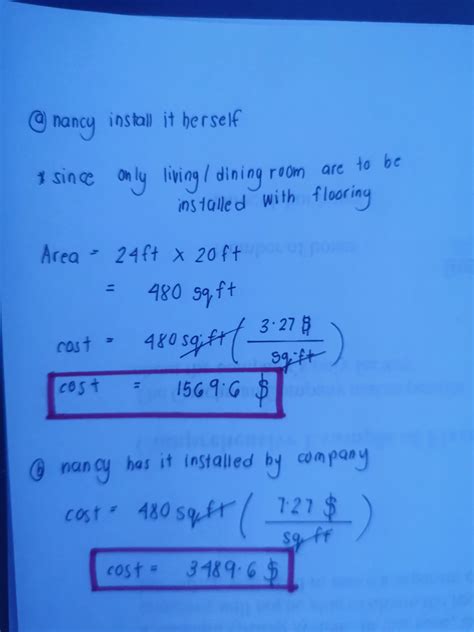 ⓐ nancy install it herself
* since only living/dining room are to be
installed with flooring
Area = 24ft x 20ft
= 480 sqft
cost = 480 sq.ft ( 3.27 $ / sq.ft )
cost = 1569.6 $
ⓑ nancy has it installed by company
cost = 480 sqft ( 7.27 $ / sq ft )
cost = 3489.6 $